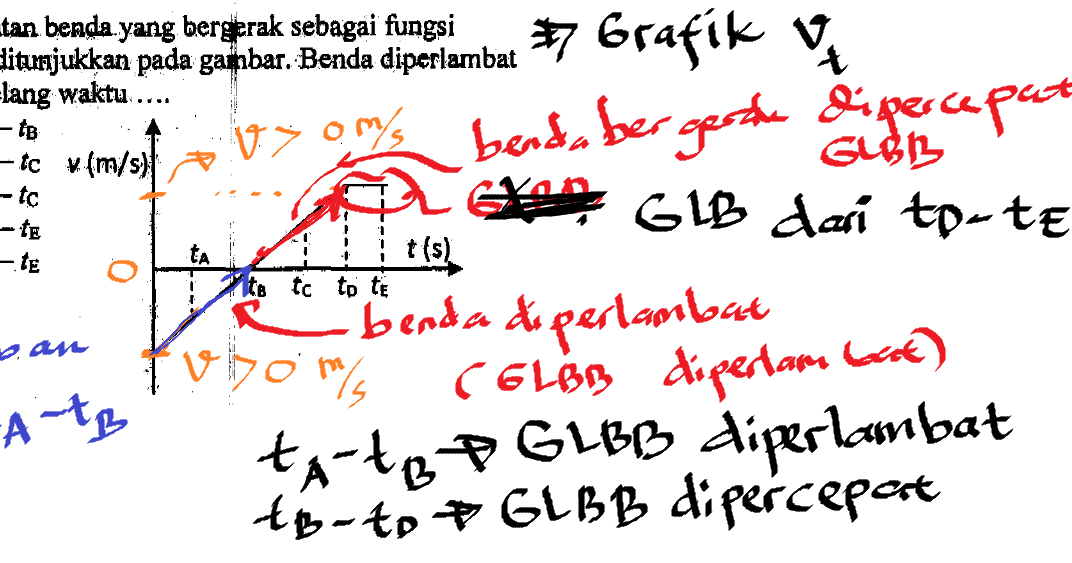 tan benda yang bergerak sebagai fungsi
ditunjukkan pada gambar. Benda diperlambat
elang waktu ....
⇒ Grafik v
t
– tB
– tC
– tC
– tE
– tE
v (m/s)
v > 0 m/s
benda bergerak dipercepat
GLBB
GLB dari tD - tE
t (s)
0
tA
tB tC tD tE
benda diperlambat
(GLBB diperlambat)
v > 0 m/s
A - tB
tA - tB → GLBB diperlambat
tB - tD → GLBB dipercepat